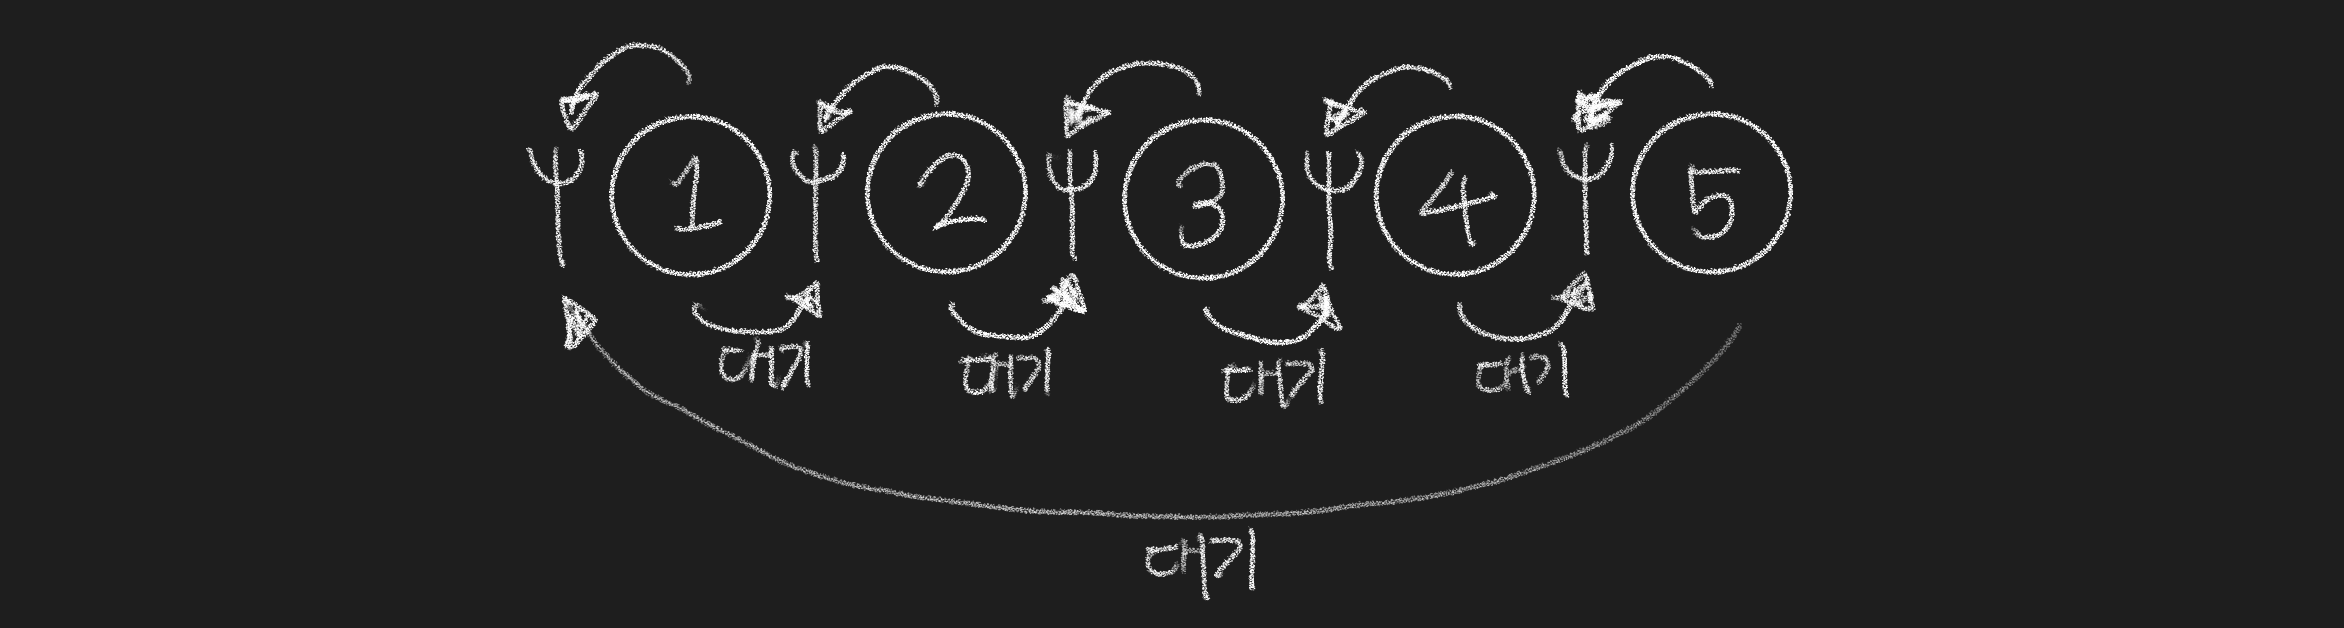 1 2 3 4 5
대기 대기 대기 대기
대기